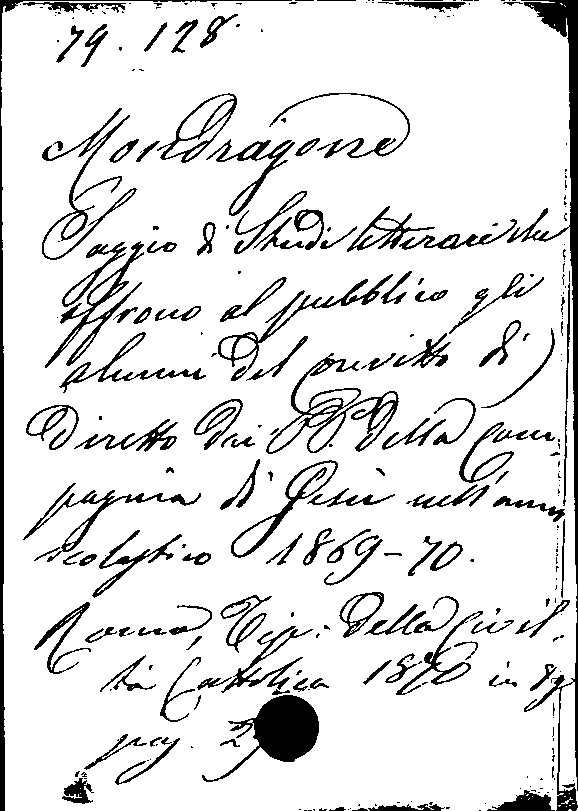 79. 128.
Mondragone
Saggio di Studi letterari che
offrono al pubblico gli
alunni del Convitto di)
Diretto dai PP. della Com-
pagnia di Gesù nell'anno
scolastico 1869-70.
Roma, Tip: della Civil-
tà Cattolica 1870 in 8º
pag. 2